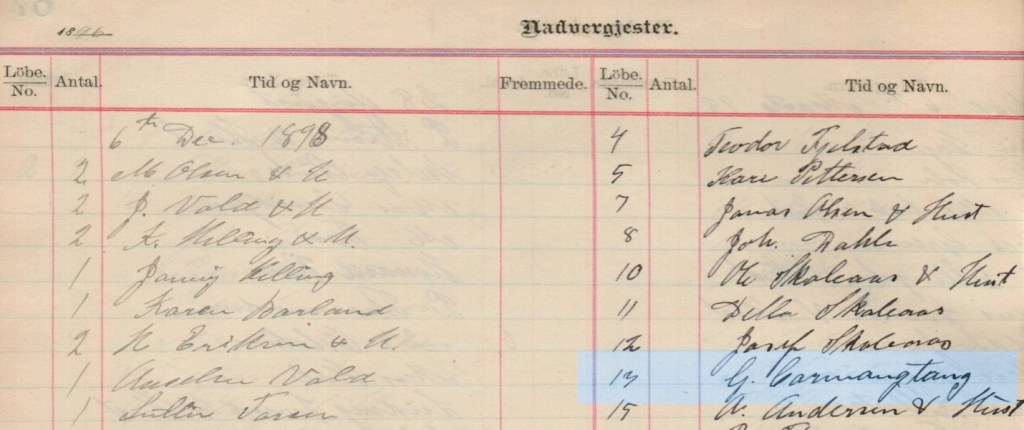 1896
Nadvergjester.
Löbe. No. Antal. Tid og Navn. Fremmede. Löbe. No. Antal. Tid og Navn.
6th Dec. 1898
2 M Olsen & H
2 J. Vold & H
2 K. Helling & H.
1 Janny Helling
1 Karen Barland
2 H Erikson & H.
1 Anselm Vold
1 Larsen
4 Teodor Fjelstad
5 Kare Pettersen
7 Jonas Olsen & Hust
8 Joh. Dahle
10 Ole Skaleaas & Hust
11 Della Skaleaas
12 Josef Skaleaas
13 G. Carmangtang
15 A. Andersen & Hust